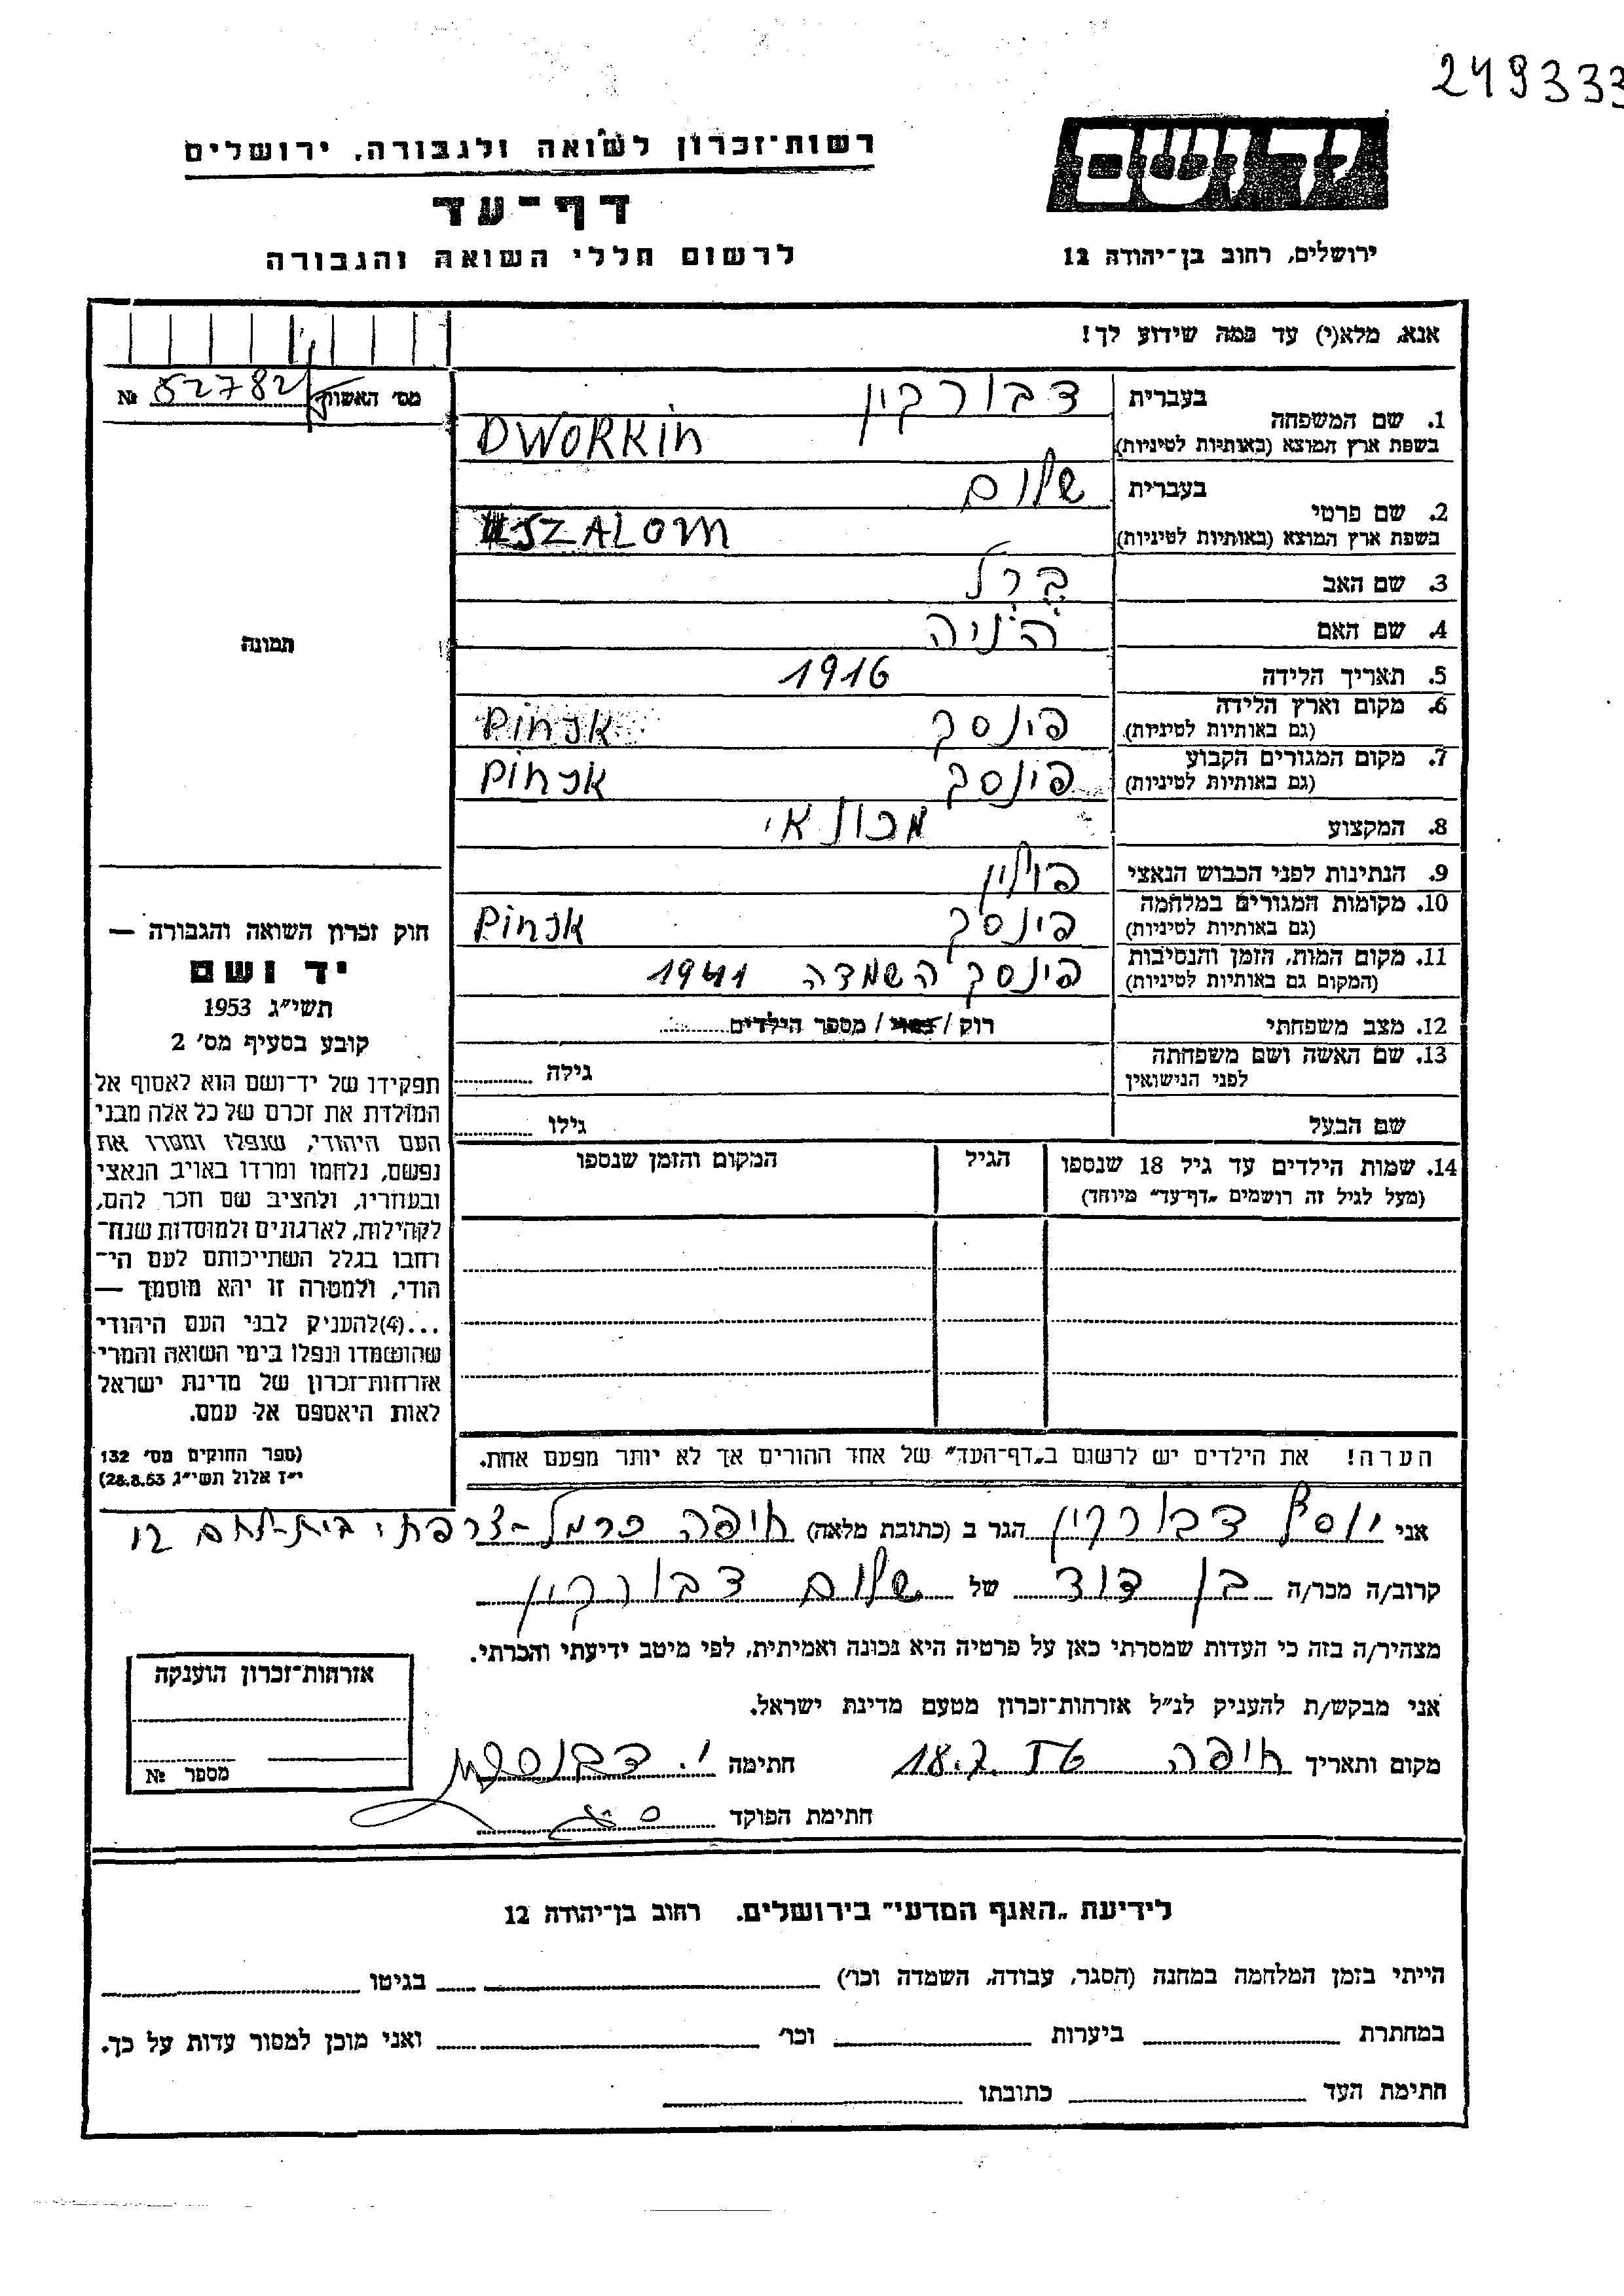 249333
יד ושם
רשות־זכרון לשואה ולגבורה, ירושלים
דף־עד
לרשום חללי השואה והגבורה
ירושלים, רחוב בן־יהודה 12
אנא, מלא(י) עד כמה שידוע לך!
מס' האשה № 52782
1. שם המשפחה בעברית דבורקין
בשפת ארץ המוצא (באותיות לטיניות) DWORKIN
2. שם פרטי בעברית שלום
בשפת ארץ המוצא (באותיות לטיניות) SZALOM
3. שם האב ברל
4. שם האם היניה
5. תאריך הלידה 1916
6. מקום וארץ הלידה פינסק Pinsk
(גם באותיות לטיניות)
7. מקום המגורים הקבוע פינסק Pinsk
(גם באותיות לטיניות)
8. המקצוע מכונאי
9. הנתינות לפני הכבוש הנאצי פולין
10. מקומות המגורים במלחמה פינסק Pinsk
(גם באותיות לטיניות)
11. מקום המות, הזמן והנסיבות פינסק השמדה 1941
(המקום גם באותיות לטיניות)
12. מצב משפחתי רוק / נשוי / מספר הילדים
13. שם האשה ושם משפחתה גילה
לפני הנישואין
שם הבעל גילו
14. שמות הילדים עד גיל 18 שנספו הגיל המקום והזמן שנספו
(מעל לגיל זה רושמים „דף־עד” מיוחד)
הערה! את הילדים יש לרשום ב„דף־העד” של אחד ההורים אך לא יותר מפעם אחת.
תמונה
חוק זכרון השואה והגבורה —
יד ושם
תשי״ג 1953
קובע בסעיף מס' 2
תפקידו של יד־ושם הוא לאסוף אל
המולדת את זכרם של כל אלה מבני
העם היהודי, שנפלו ומסרו את
נפשם, נלחמו ומרדו באויב הנאצי
ובעוזריו, ולהציב שם וזכר להם,
לקהילות, לארגונים ולמוסדות שנח־
רחבו בגלל השתייכותם לעם הי־
הודי, ולמטרה זו יהא מוסמך —
...(4)להעניק לבני העם היהודי
שהושמדו ונפלו בימי השואה והמרי
אזרחות־זכרון של מדינת ישראל
לאות היאספם אל עמם.
(ספר החוקים מס' 132
י״ז אלול תשי״ג 28.8.53)
אני יוסף דבורקין הגר ב (כתובת מלאה) חיפה כרמל־צרפתי בית־לחם 12
קרוב/ה מכר/ה בן דוד של שלום דבורקין
מצהיר/ה בזה כי העדות שמסרתי כאן על פרטיה היא נכונה ואמיתית, לפי מיטב ידיעתי והכרתי.
אני מבקש/ת להעניק לנ״ל אזרחות־זכרון מטעם מדינת ישראל.
מקום ותאריך חיפה 18.7 חתימה י.
חתימת הפוקד
אזרחות־זכרון הוענקה
מספר №
לידיעת „האגף המדעי” בירושלים. רחוב בן־יהודה 12
הייתי בזמן המלחמה במחנה (הסגר, עבודה, השמדה וכו') בגיטו
במחתרת ביערות וכו' ואני מוכן למסור עדות על כך.
חתימת העד כתובתו